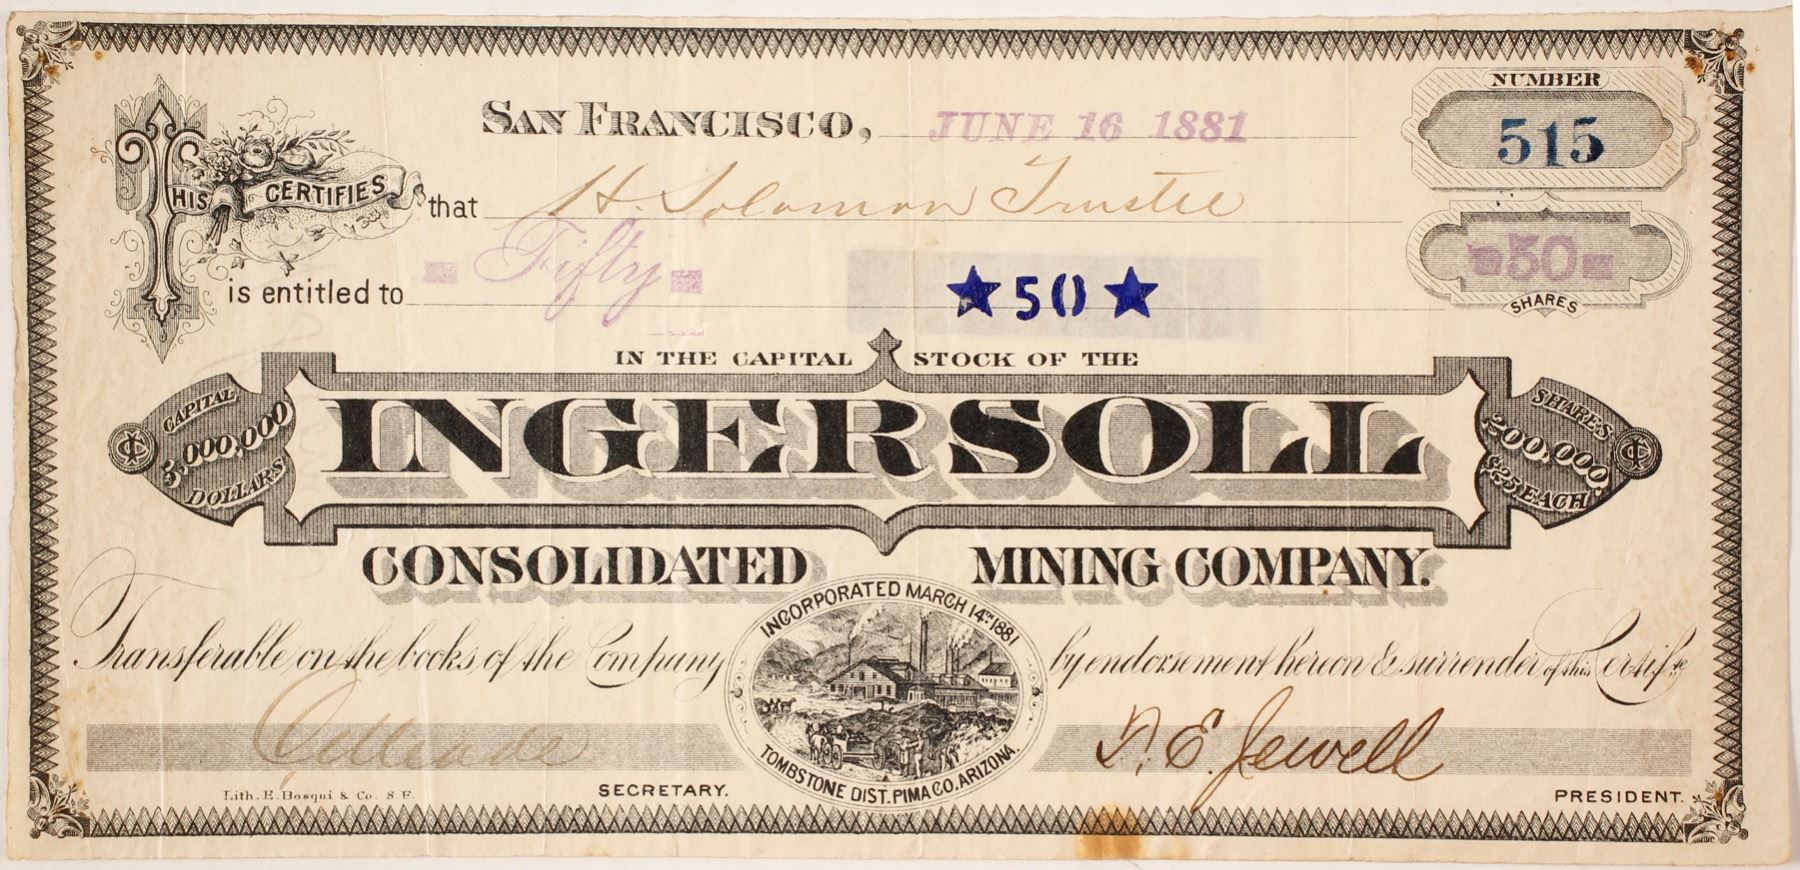 NUMBER
SAN FRANCISCO, JUNE 16 1881
515
THIS CERTIFIES that H. Solomon Trustee
50
SHARES
is entitled to Fifty ★50★
IN THE CAPITAL STOCK OF THE
CAPITAL
5,000,000
DOLLARS
INGERSOLL
SHARES
200,000.
$25 EACH
CONSOLIDATED MINING COMPANY.
INCORPORATED MARCH 14TH 1881
Transferable on the books of the Company by endorsement hereon & surrender of this Certifte
TOMBSTONE DIST. PIMA CO. ARIZONA.
SECRETARY.
Jewell
PRESIDENT.
Lith. E. Bosqui & Co. S. F.